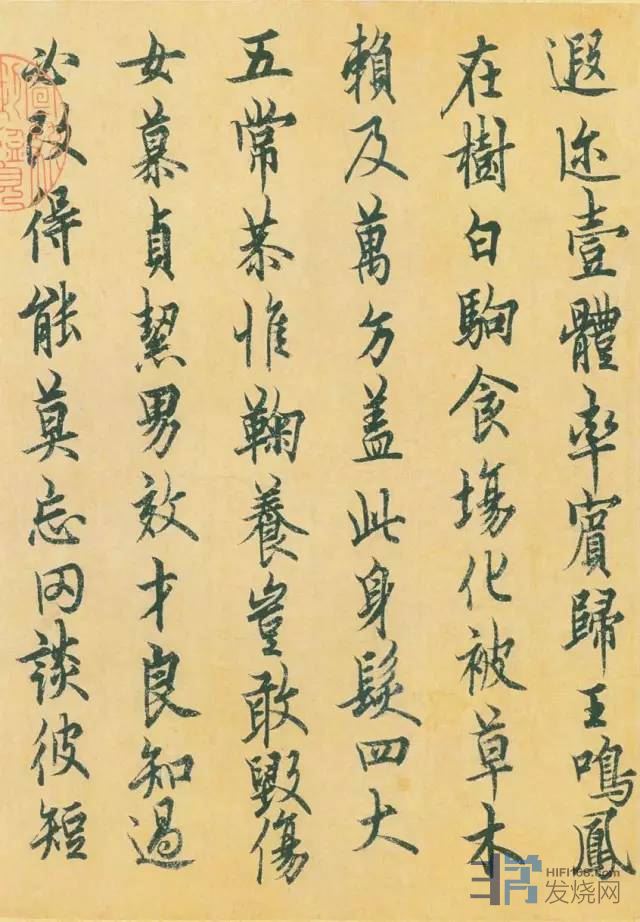 遐迩壹體率賓歸王鳴鳳
在樹白駒食場化被草木
賴及萬方盖此身髮四大
五常恭惟鞠養豈敢毀傷
女慕貞絜男效才良知過
必改得能莫忘罔談彼短
HIFI168.com
发烧网